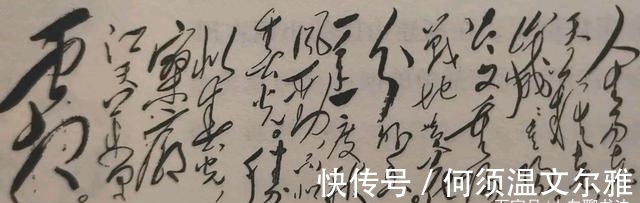 人生易老
天难老
岁岁重阳
今又重
战地黄花
分外
一年一度
风劲不似
春光。胜
似春光
寥廓
江天万里
霜
快传号 / 何须温文尔雅